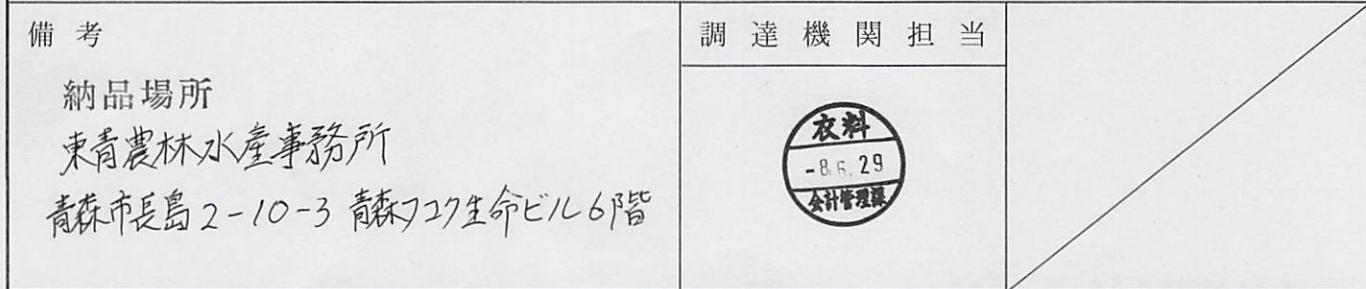 備考
納品場所
東青農林水産事務所
青森市長島2-10-3 青森フコク生命ビル6階
調達機関担当
衣料
-8.6.29
会計管理課